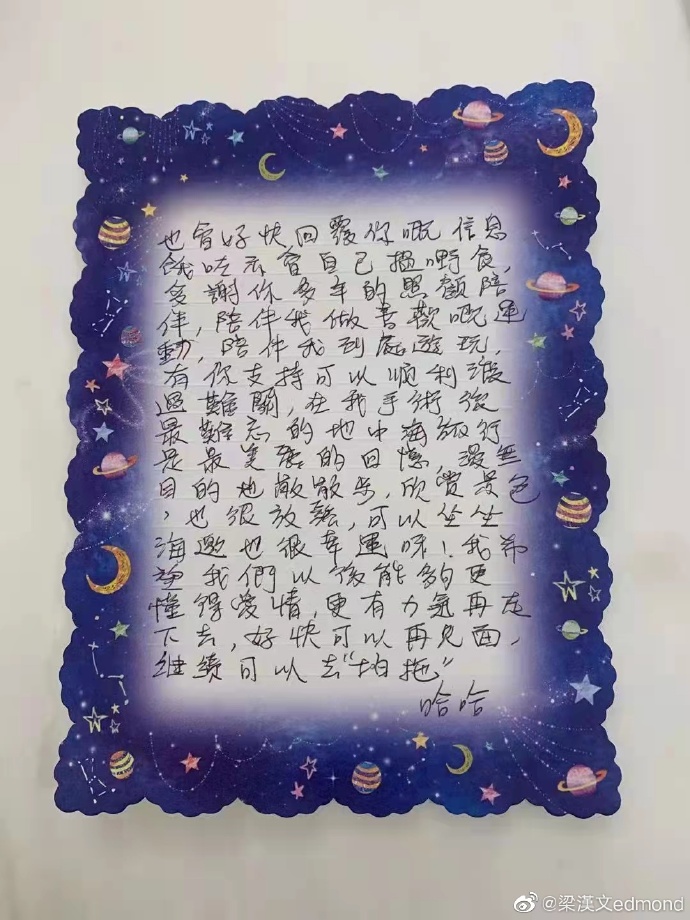 也會好快回覆你嘅信息
餓咗不會自己搵嘢食,
多謝你多年的照顧陪
伴,陪伴我做喜歡嘅運
動,陪伴我到處遊玩,
有你支持可以順利渡
過難關,在我手術後
最難忘的地中海旅行
是最美麗的回憶,漫無
目的地散散步,欣賞景色
,也很放鬆,可以坐坐
海邊也很幸運呀!我希
望我們以後能夠更
懂得愛情,更有力氣再走
下去,好快可以再見面,
继续可以去"拍拖"
哈哈
@梁漢文edmond